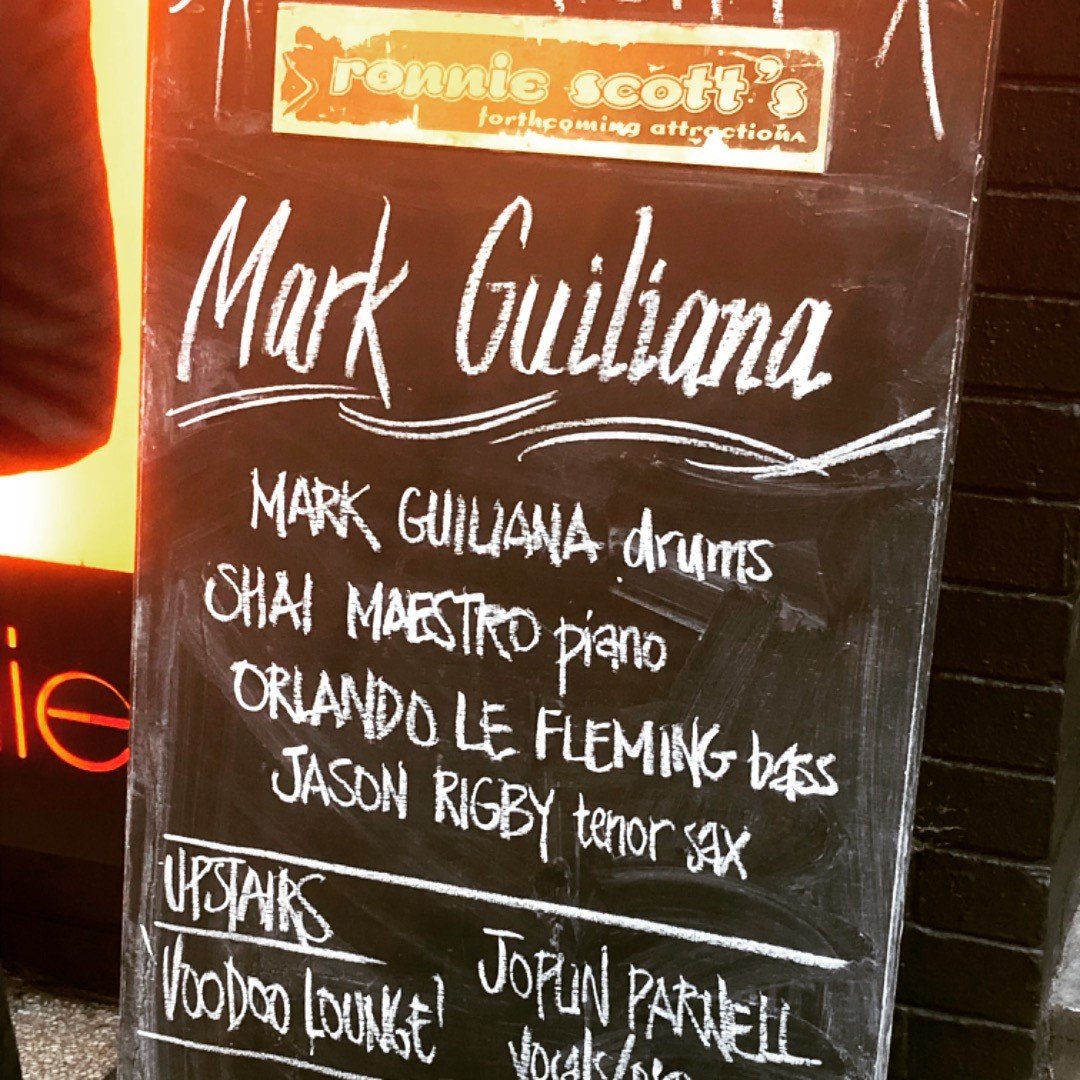 ronnie scott's
forthcoming attractions
Mark Guiliana
MARK GUILIANA drums
SHAI MAESTRO piano
ORLANDO LE FLEMING bass
JASON RIGBY tenor sax
UPSTAIRS
'VOODOO LOUNGE'
JOPLIN PARNELL
ie